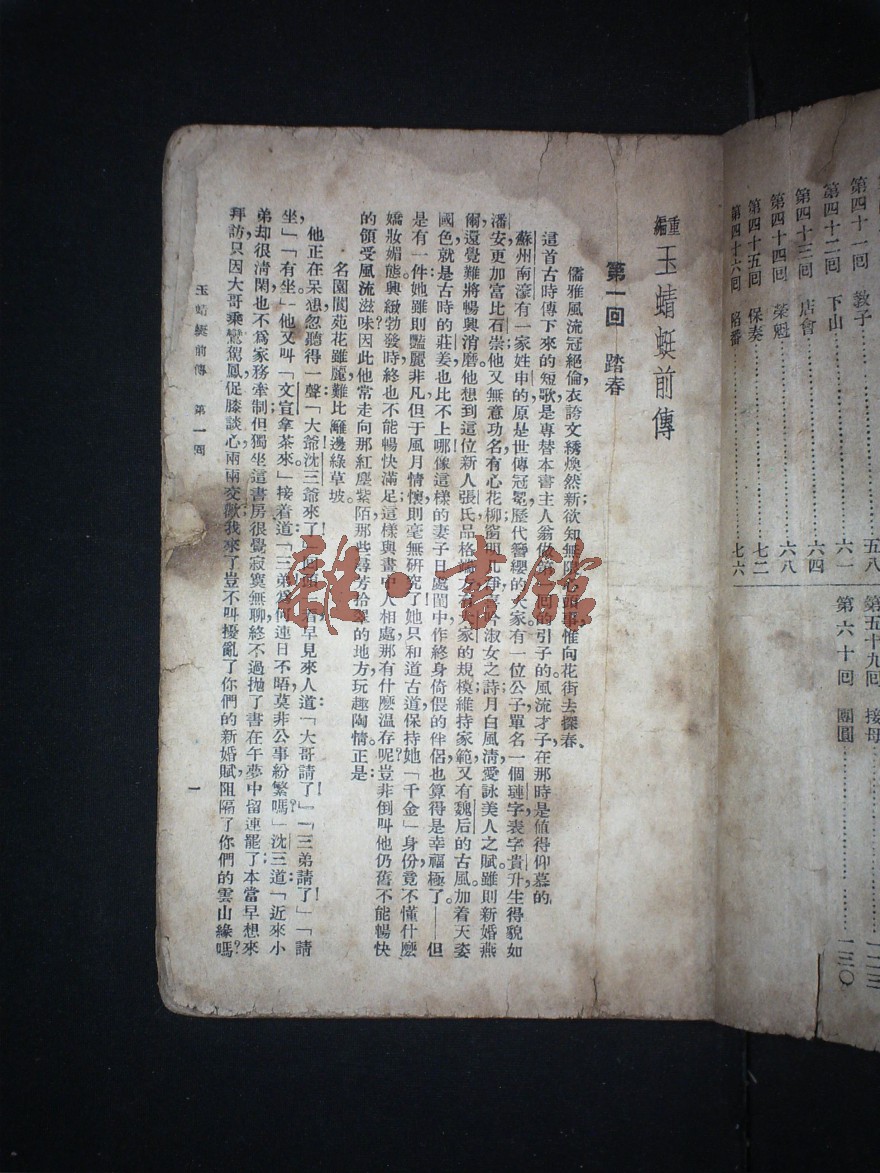 第四十一回　敎子………五八
第四十二回　下山………六一
第四十三回　店會………六四
第四十四回　榮魁………六八
第四十五回　保奏………七二
第四十六回　和番………七六
第五十九回　接母………一二三
第六十回　團圓………一三〇
重編　玉蜻蜓前傳
第一回　踏春
儒雅風流冠絕倫，衣誇文綉煥然新；欲知無限心頭事，惟向花街去探春。
這首古時傳下來的短歌，是專替本書主人翁做第一回的引子的。風流才子，在那時是值得仰慕的，
蘇州南濠有一家姓申的，原是世傳冠冕，歷代簪纓的大家。有一位公子，單名一個璉字，表字貴升，生得貌如
潘安，更加富比石崇。他又無意功名，有心花柳，窗明几淨，
淑女之詩；月白風淸，愛詠美人之賦。雖則新婚燕
爾，還覺難將暢興消磨。他想到這位新人張氏，品格端方，
大家的規模，維持家範，又有魏后的古風，加着天姿
國色，就是古時的莊姜，也比不上，哪像這樣的妻子，日處閨中，作終身倚偎的伴侶，也算得是幸福極了！——但
是有一件，她雖則豔麗非凡，但于風月情懷，則毫無硏究。她只和道古道，保持她「千金」身份，竟不懂什麽
嬌妝媚態，興緻勃發時，終也不能暢快滿足，這樣與畫中人相處，那有什麽温存呢？豈非倒叫他仍舊不能暢快
的領受風流滋味？因此他常走向那紅塵紫陌，那些尋芳拾翠的地方，玩趣陶情。正是：
名園閬苑花雖麗，難比籬邊綠草坡。
他正在呆想，忽聽得一聲：「大爺，沈三爺來了！」回頭一看，早見來人道：「大哥請了！」「三弟請了！」「請
坐，」「有坐，」他又叫：「文宣拿茶來。」接着道：「三弟爲何連日不晤，莫非公事紛繁嗎？」沈三道：「近來小
弟却很淸閑，也不爲家務牽制，但獨坐這書房，很覺寂寞無聊，終不過拋了書在午夢中留連罷了。本當早想來
拜訪，只因大哥乘鸞駕鳳，促膝談心，兩兩交歡，我來了豈不叫擾亂了你們的新婚賦，阻隔了你們的雲山緣嗎？
玉蜻蜓前傳　第一囘
一
雜·書館